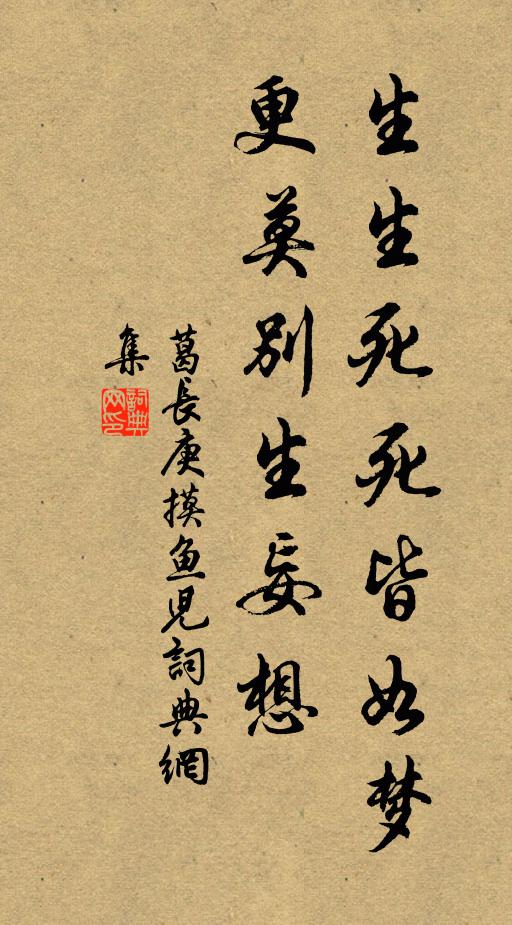 生生死死皆如梦
更莫别生妄想
葛長庚摸鱼児詞典網
集
詞典
网印